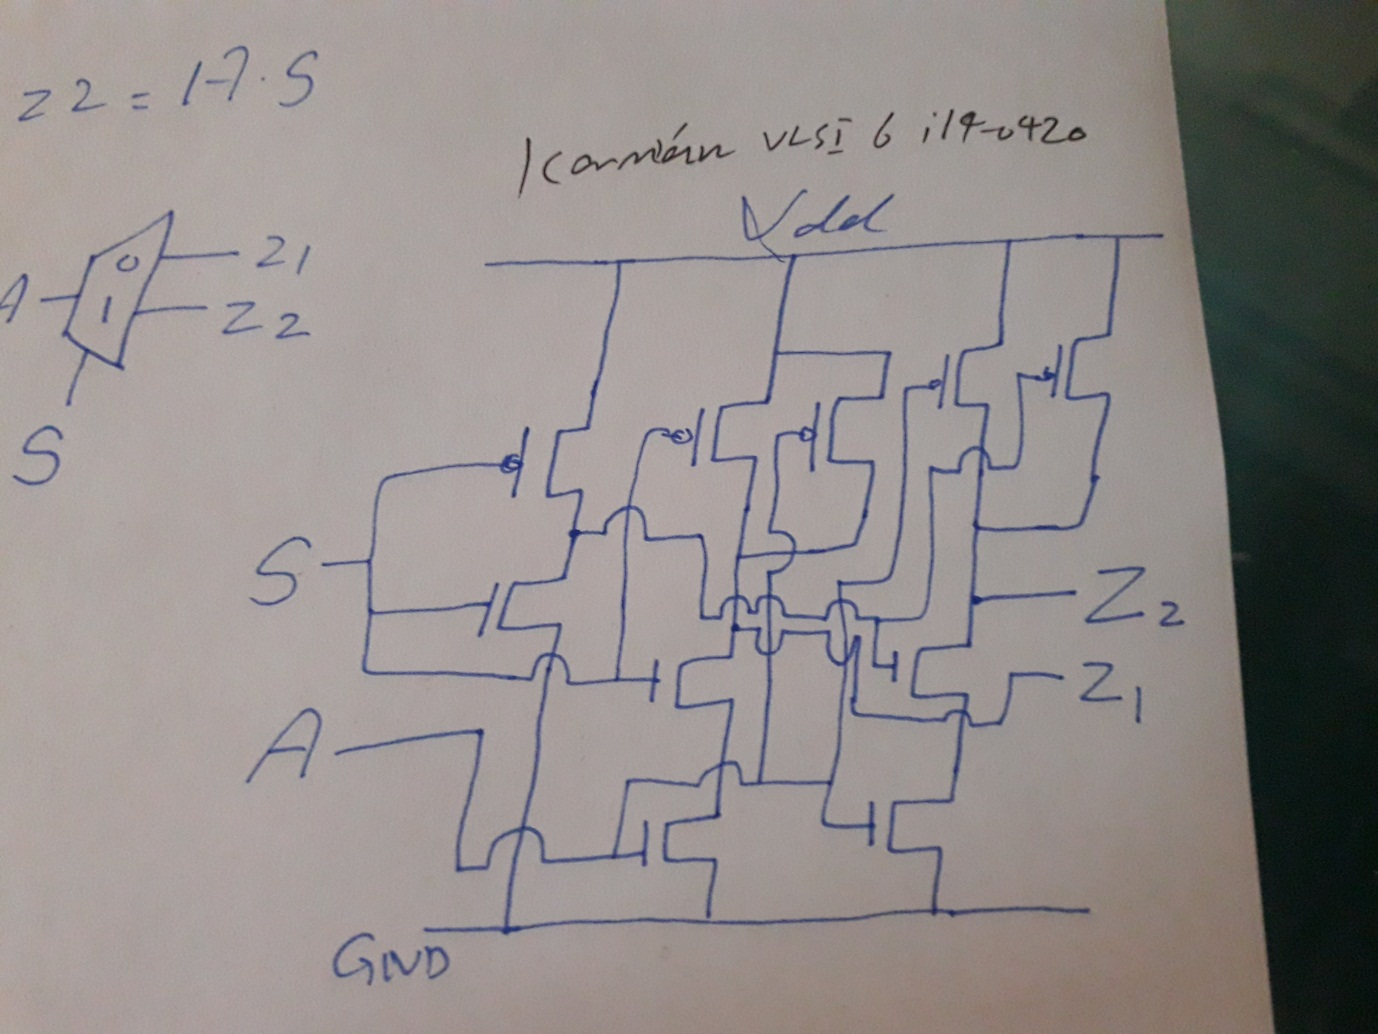 Z2 = A.S
Karmán VLSI 6 i14-0420
Vdd
0
Z1
A
1
Z2
S
S
Z2
Z1
A
GND